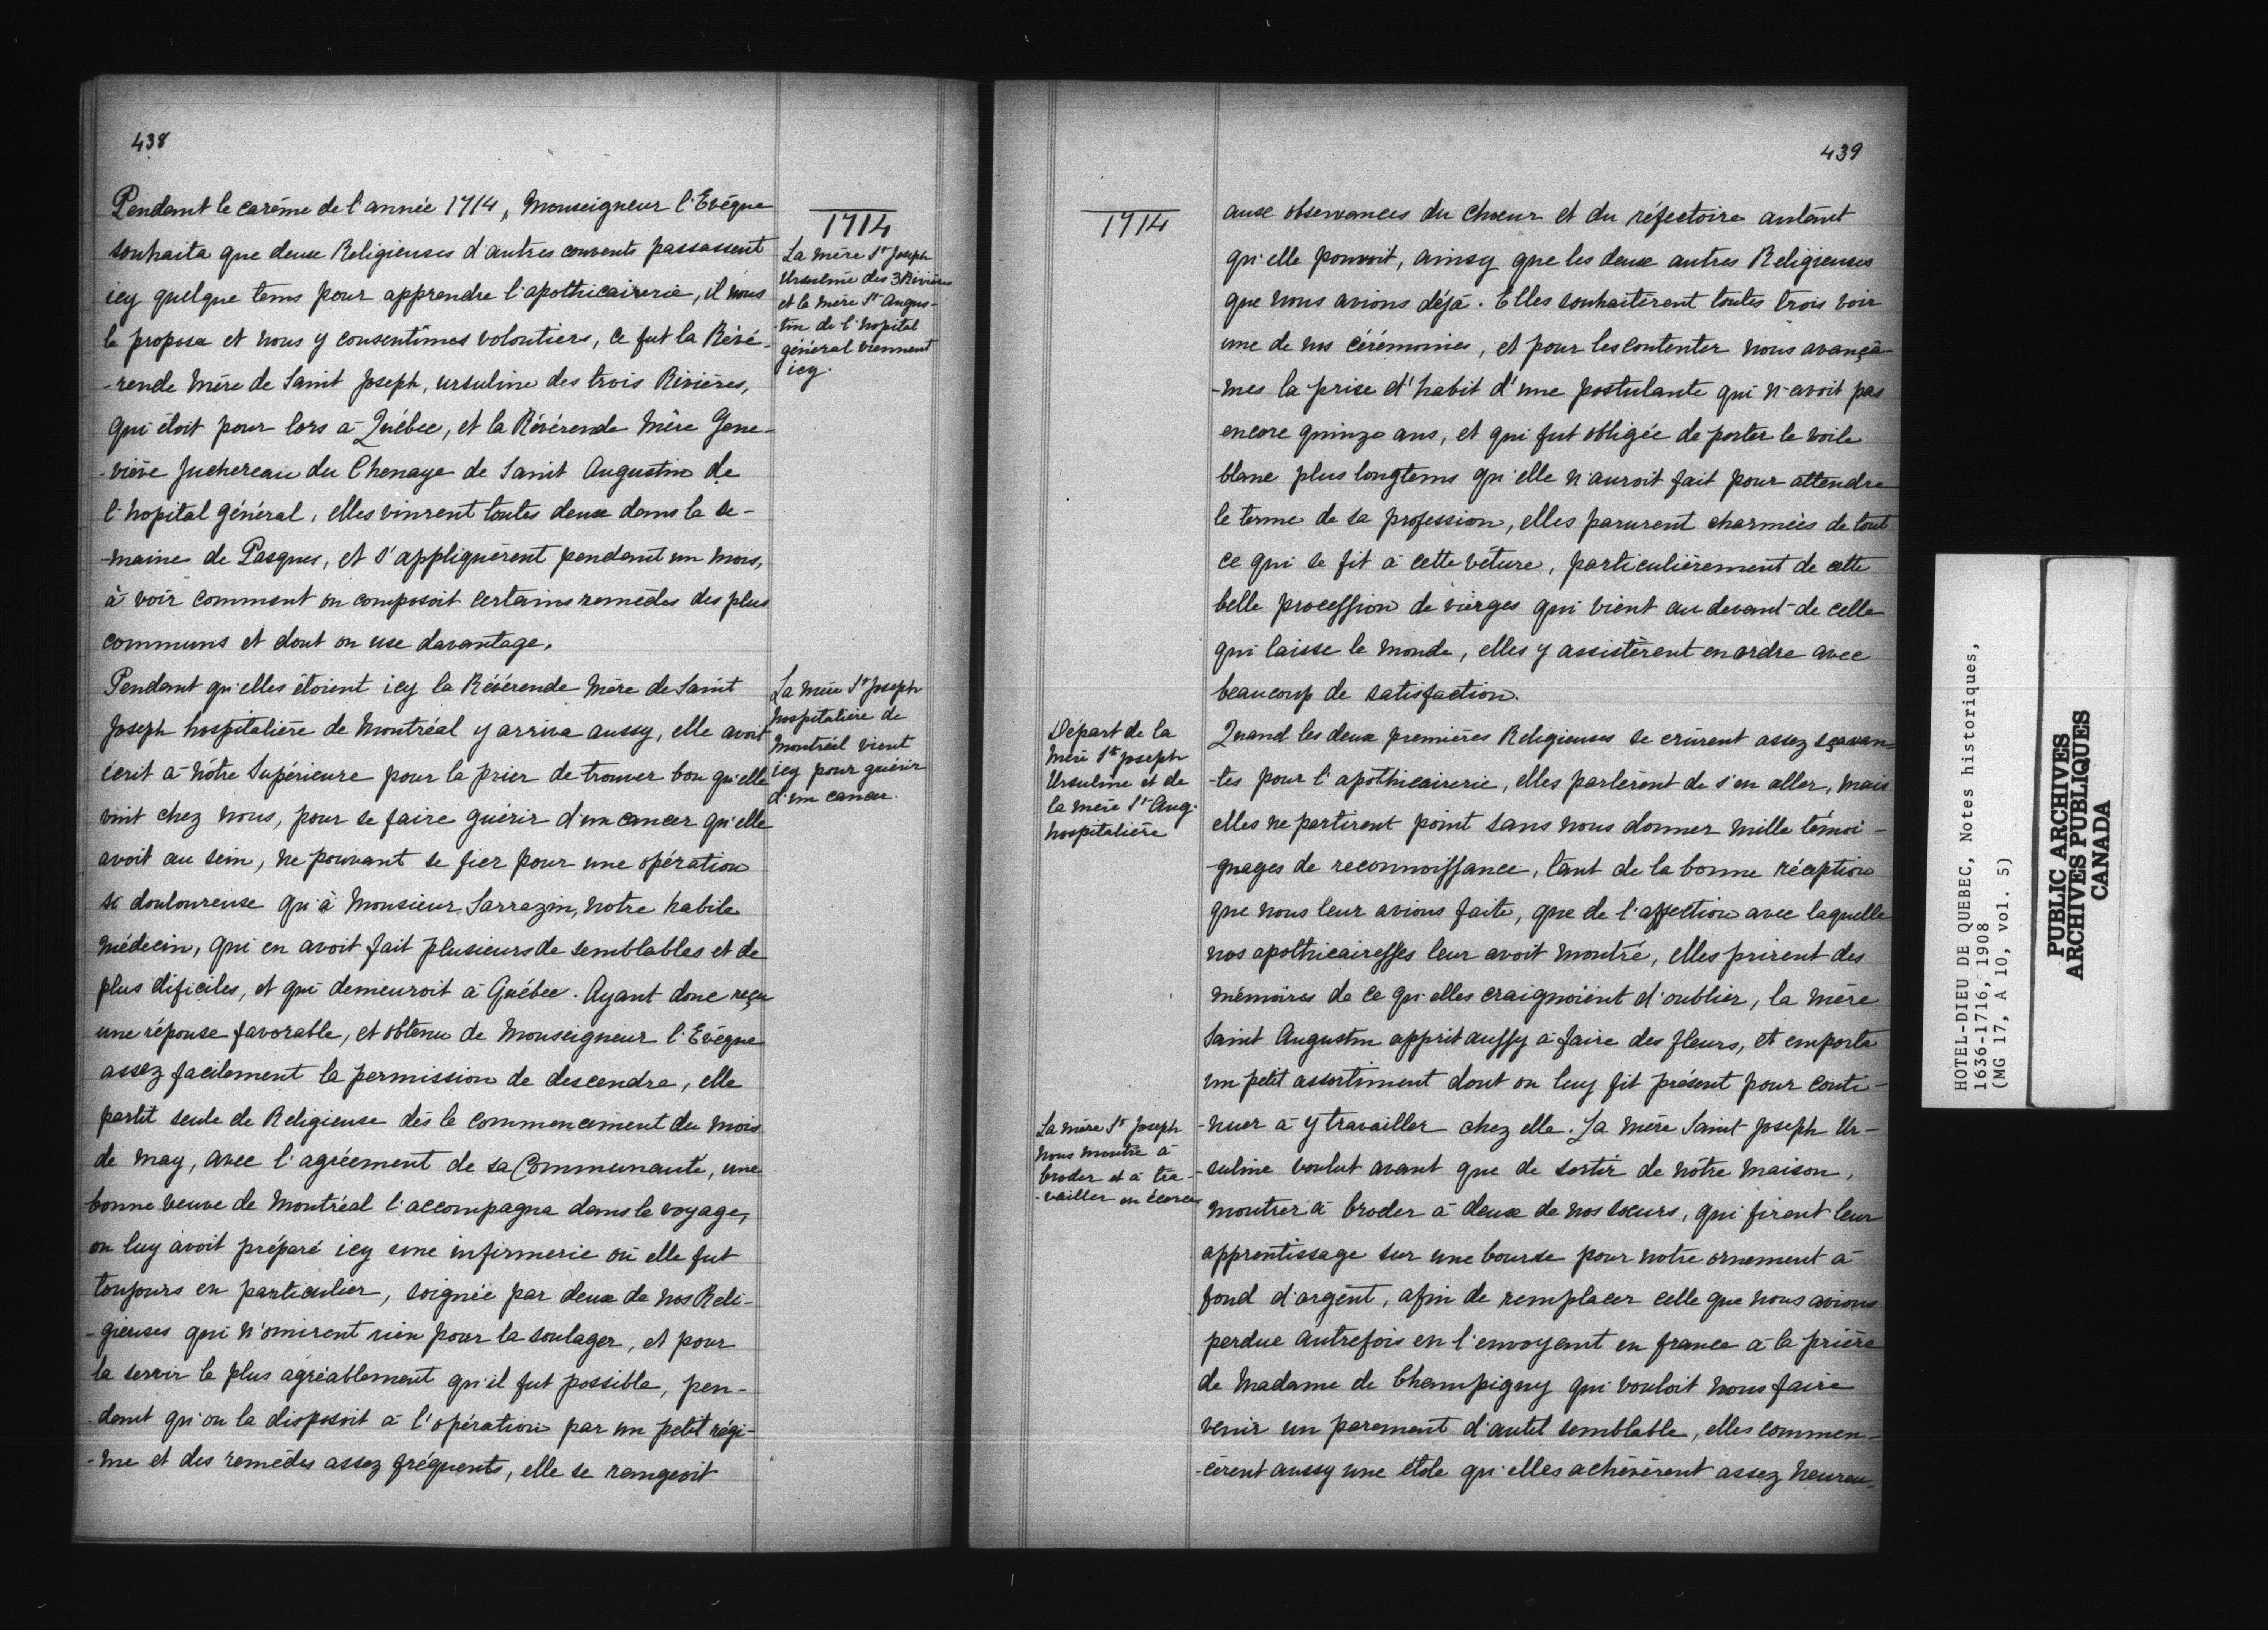 438
Pendant le carême de l'année 1714, Monseigneur l'Evêque
souhaita que deux Religieuses d'autres couvents passassent
icy quelque tems pour apprendre l'apothicairerie, il nous
le proposa et nous y consentîmes volontiers, ce fut la Révé-
-rende Mère de Saint Joseph, ursuline des trois Rivières,
qui étoit pour lors à Québec, et la Révérende Mère Gene-
-viève Juchereau du Chenaye de Saint Augustin de
l'hopital général, elles vinrent toutes deux dans la se-
-maine de Pasques, et s'appliquèrent pendant un mois,
à voir comment on composoit certains remèdes des plus
communs et dont on use davantage.
Pendant qu'elles étoient icy la Révérende Mère de Saint
Joseph hospitalière de Montréal y arriva aussy, elle avoit
écrit à nôtre Supérieure pour la prier de trouver bon qu'elle
vint chez nous, pour se faire guérir d'un cancer qu'elle
avoit au sein, ne pouvant se fier pour une opération
si douloureuse qu'à Monsieur Sarrazin, notre habile
médecin, qui en avoit fait plusieurs de semblables et de
plus dificiles, et qui demeuroit à Québec. Ayant donc reçu
une réponse favorable, et obtenu de Monseigneur l'Evêque
assez facilement la permission de descendre, elle
partit seule de Religieuse dès le commencement du mois
de may, avec l'agrément de sa Communauté, une
bonne veuve de Montréal l'accompagna dans le voyage,
on luy avoit préparé icy une infirmerie où elle fut
toujours en particulier, soignée par deux de nos Reli-
-gieuses qui n'omirent rien pour la soulager, et pour
la servir le plus agréablement qu'il fut possible, pen-
-dant qu'on la disposoit à l'opération par un petit régi-
-me et des remèdes assez fréquents, elle se rangeoit
1714
La mère St Joseph
Ursuline des 3 Rivières
et la mère St Augus-
-tin de l'hopital
général viennent
icy.
La mère St Joseph
hospitalière de
Montréal vient
icy pour guérir
d'un cancer.
439
1714
aux observances du chœur et du réfectoire autant
qu'elle pouvoit, ainsy que les deux autres Religieuses
que nous avions déjà. Elles souhaitèrent toutes trois voir
une de nos cérémonies, et pour les contenter nous avançâ-
-mes la prise d'habit d'une postulante qui n'avoit pas
encore quinze ans, et qui fut obligée de porter le voile
blanc plus longtems qu'elle n'auroit fait pour attendre
le terme de sa profession, elles parurent charmées de tout
ce qui se fit à cette vêture, particulièrement de cette
belle procession de vierges qui vient au devant de celle
qui laisse le monde, elles y assistèrent en ordre avec
beaucoup de satisfaction.
Quand les deux premières Religieuses se crûrent assez sçavan-
-tes pour l'apothicairerie, elles parlèrent de s'en aller, mais
elles ne partirent point sans nous donner mille témoi-
-gnages de reconnoissance, tant de la bonne réception
que nous leur avions faite, que de l'affection avec laquelle
nos apothicairesses leur avoit montré, elles prirent des
mémoires de ce qu'elles craignoient d'oublier, la mère
Saint Augustin apprit aussy à faire des fleurs, et emporta
un petit assortiment dont on luy fit présent pour conti-
-nuer à y travailler chez elle. La mère Saint Joseph Ur-
-suline voulut avant que de sortir de nôtre maison,
montrer à broder à deux de nos sœurs, qui firent leur
apprentissage sur une bourse pour notre ornement à
fond d'argent, afin de remplacer celle que nous avions
perdue autrefois en l'envoyant en france à la prière
de Madame de Champigny qui vouloit nous faire
venir un parement d'autel semblable, elles commen-
-cèrent aussy une étole qu'elles achevèrent assez heureu-
Départ de la
Mère St Joseph
Ursuline et de
la mère St Aug.
hospitalière
La mère St Joseph
nous montre à
broder et à tra-
-vailler en écorce
HOTEL-DIEU DE QUEBEC, Notes historiques,
1636-1716, 1908
(MG 17, A 10, vol. 5)
PUBLIC ARCHIVES
ARCHIVES PUBLIQUES
CANADA